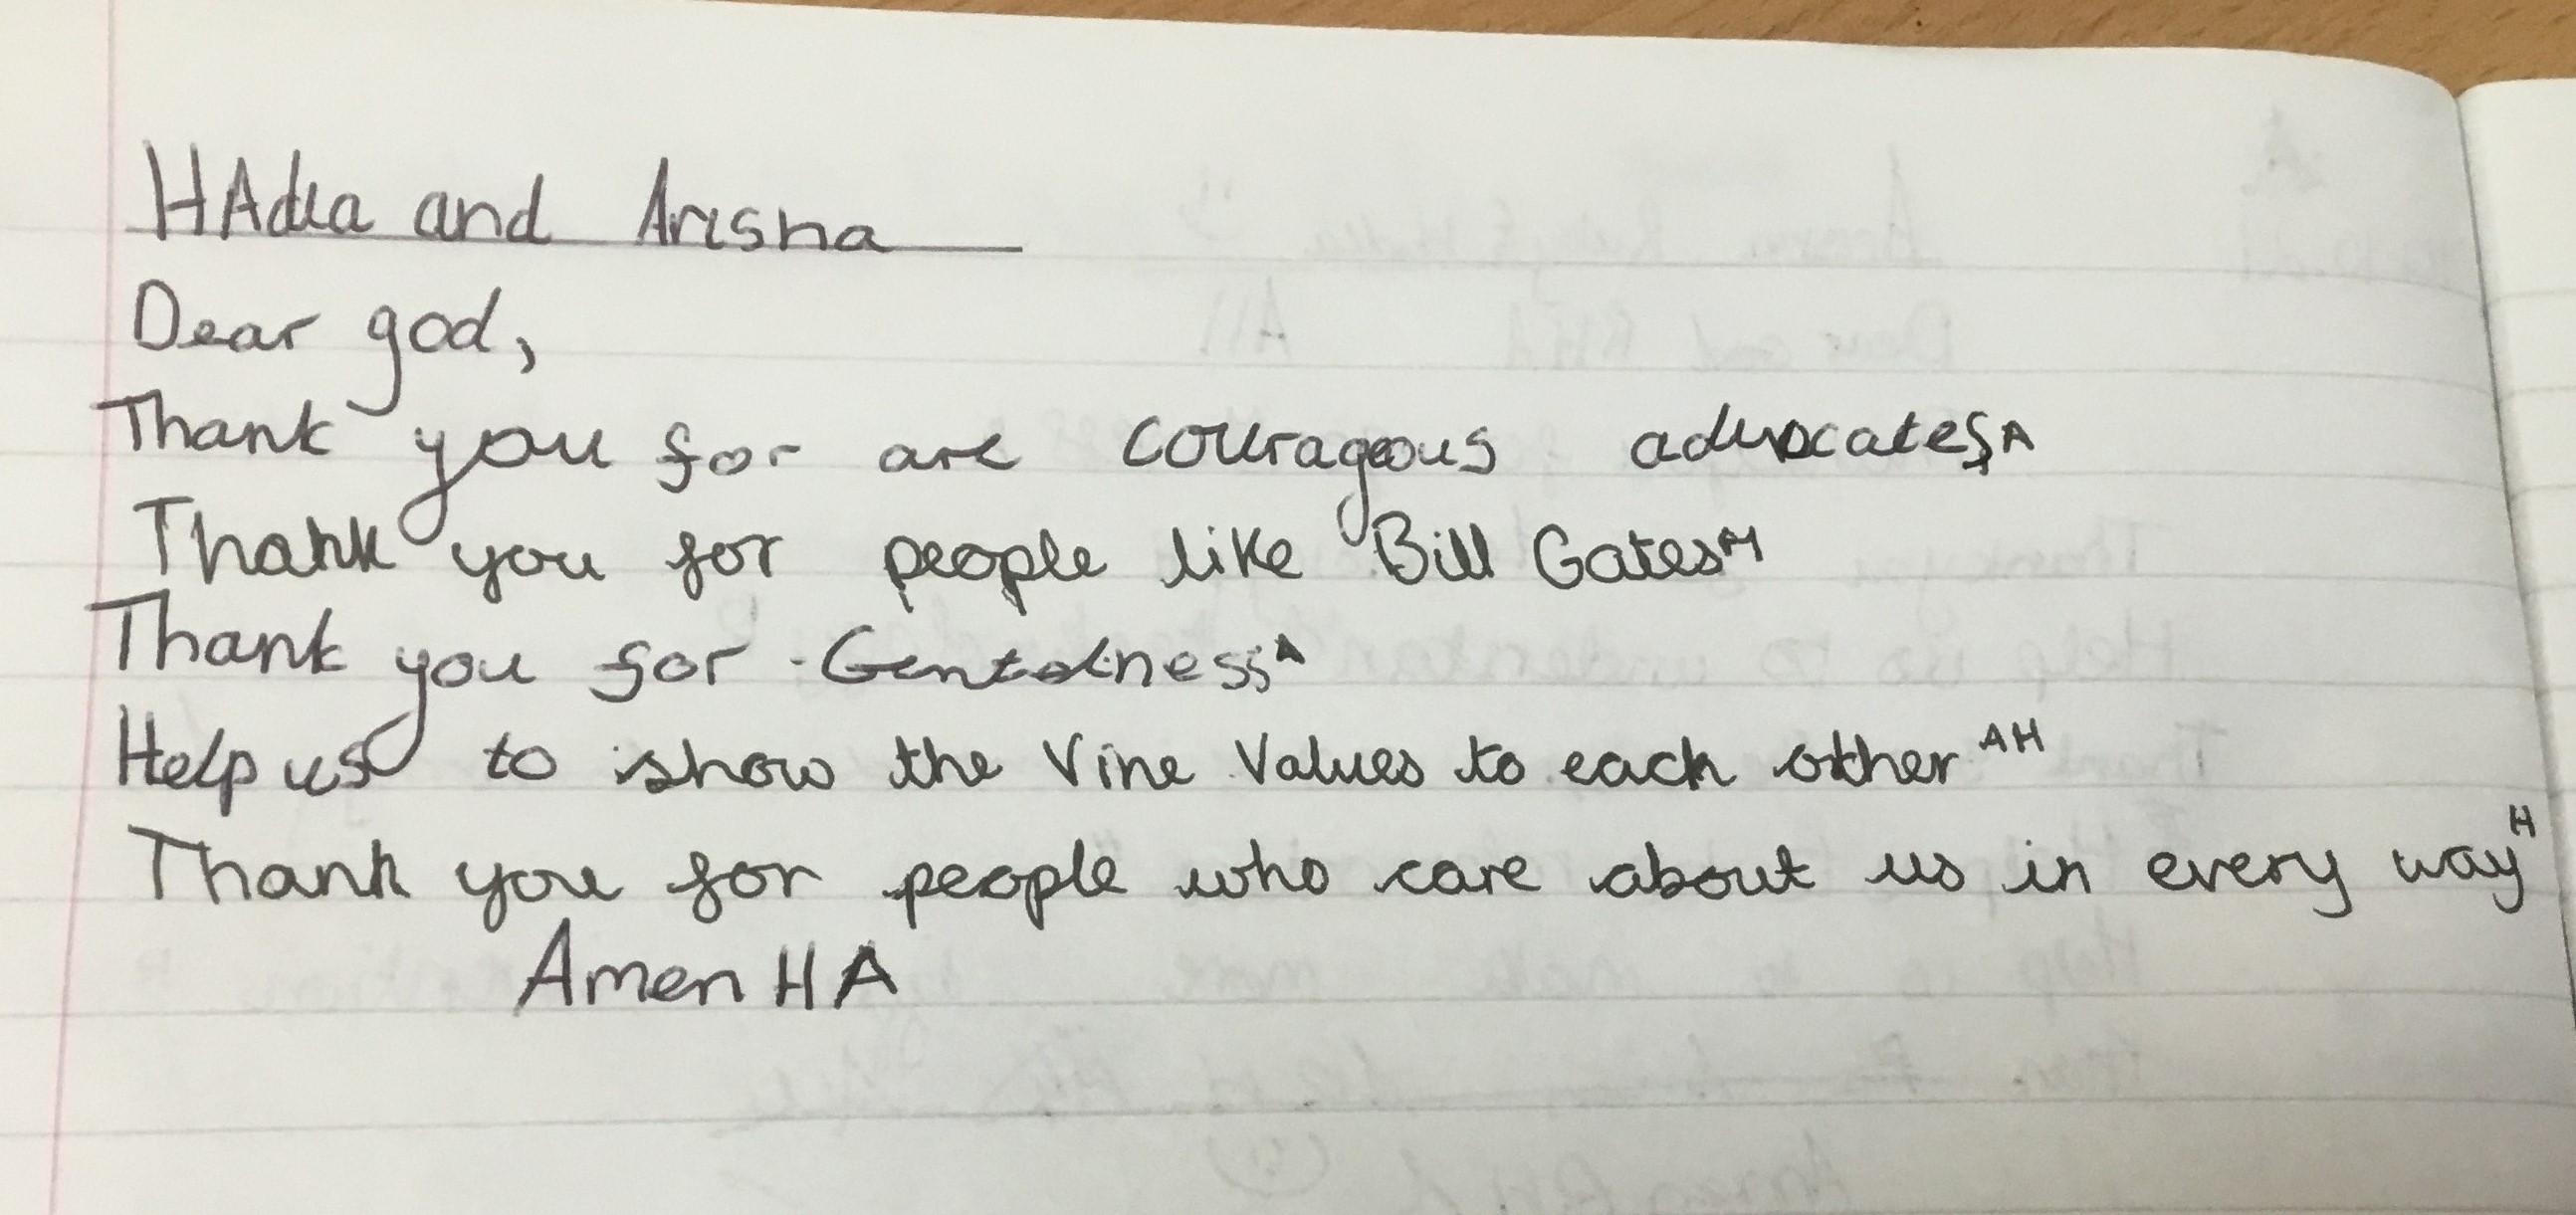 HAdia and Arisha
Dear god,
Thank you for are courageous advocates A
Thank you for people like Bill Gates H
Thank you for Gentelness A
Help us to show the Vine Values to each other AH
Thank you for people who care about us in every way H
Amen HA